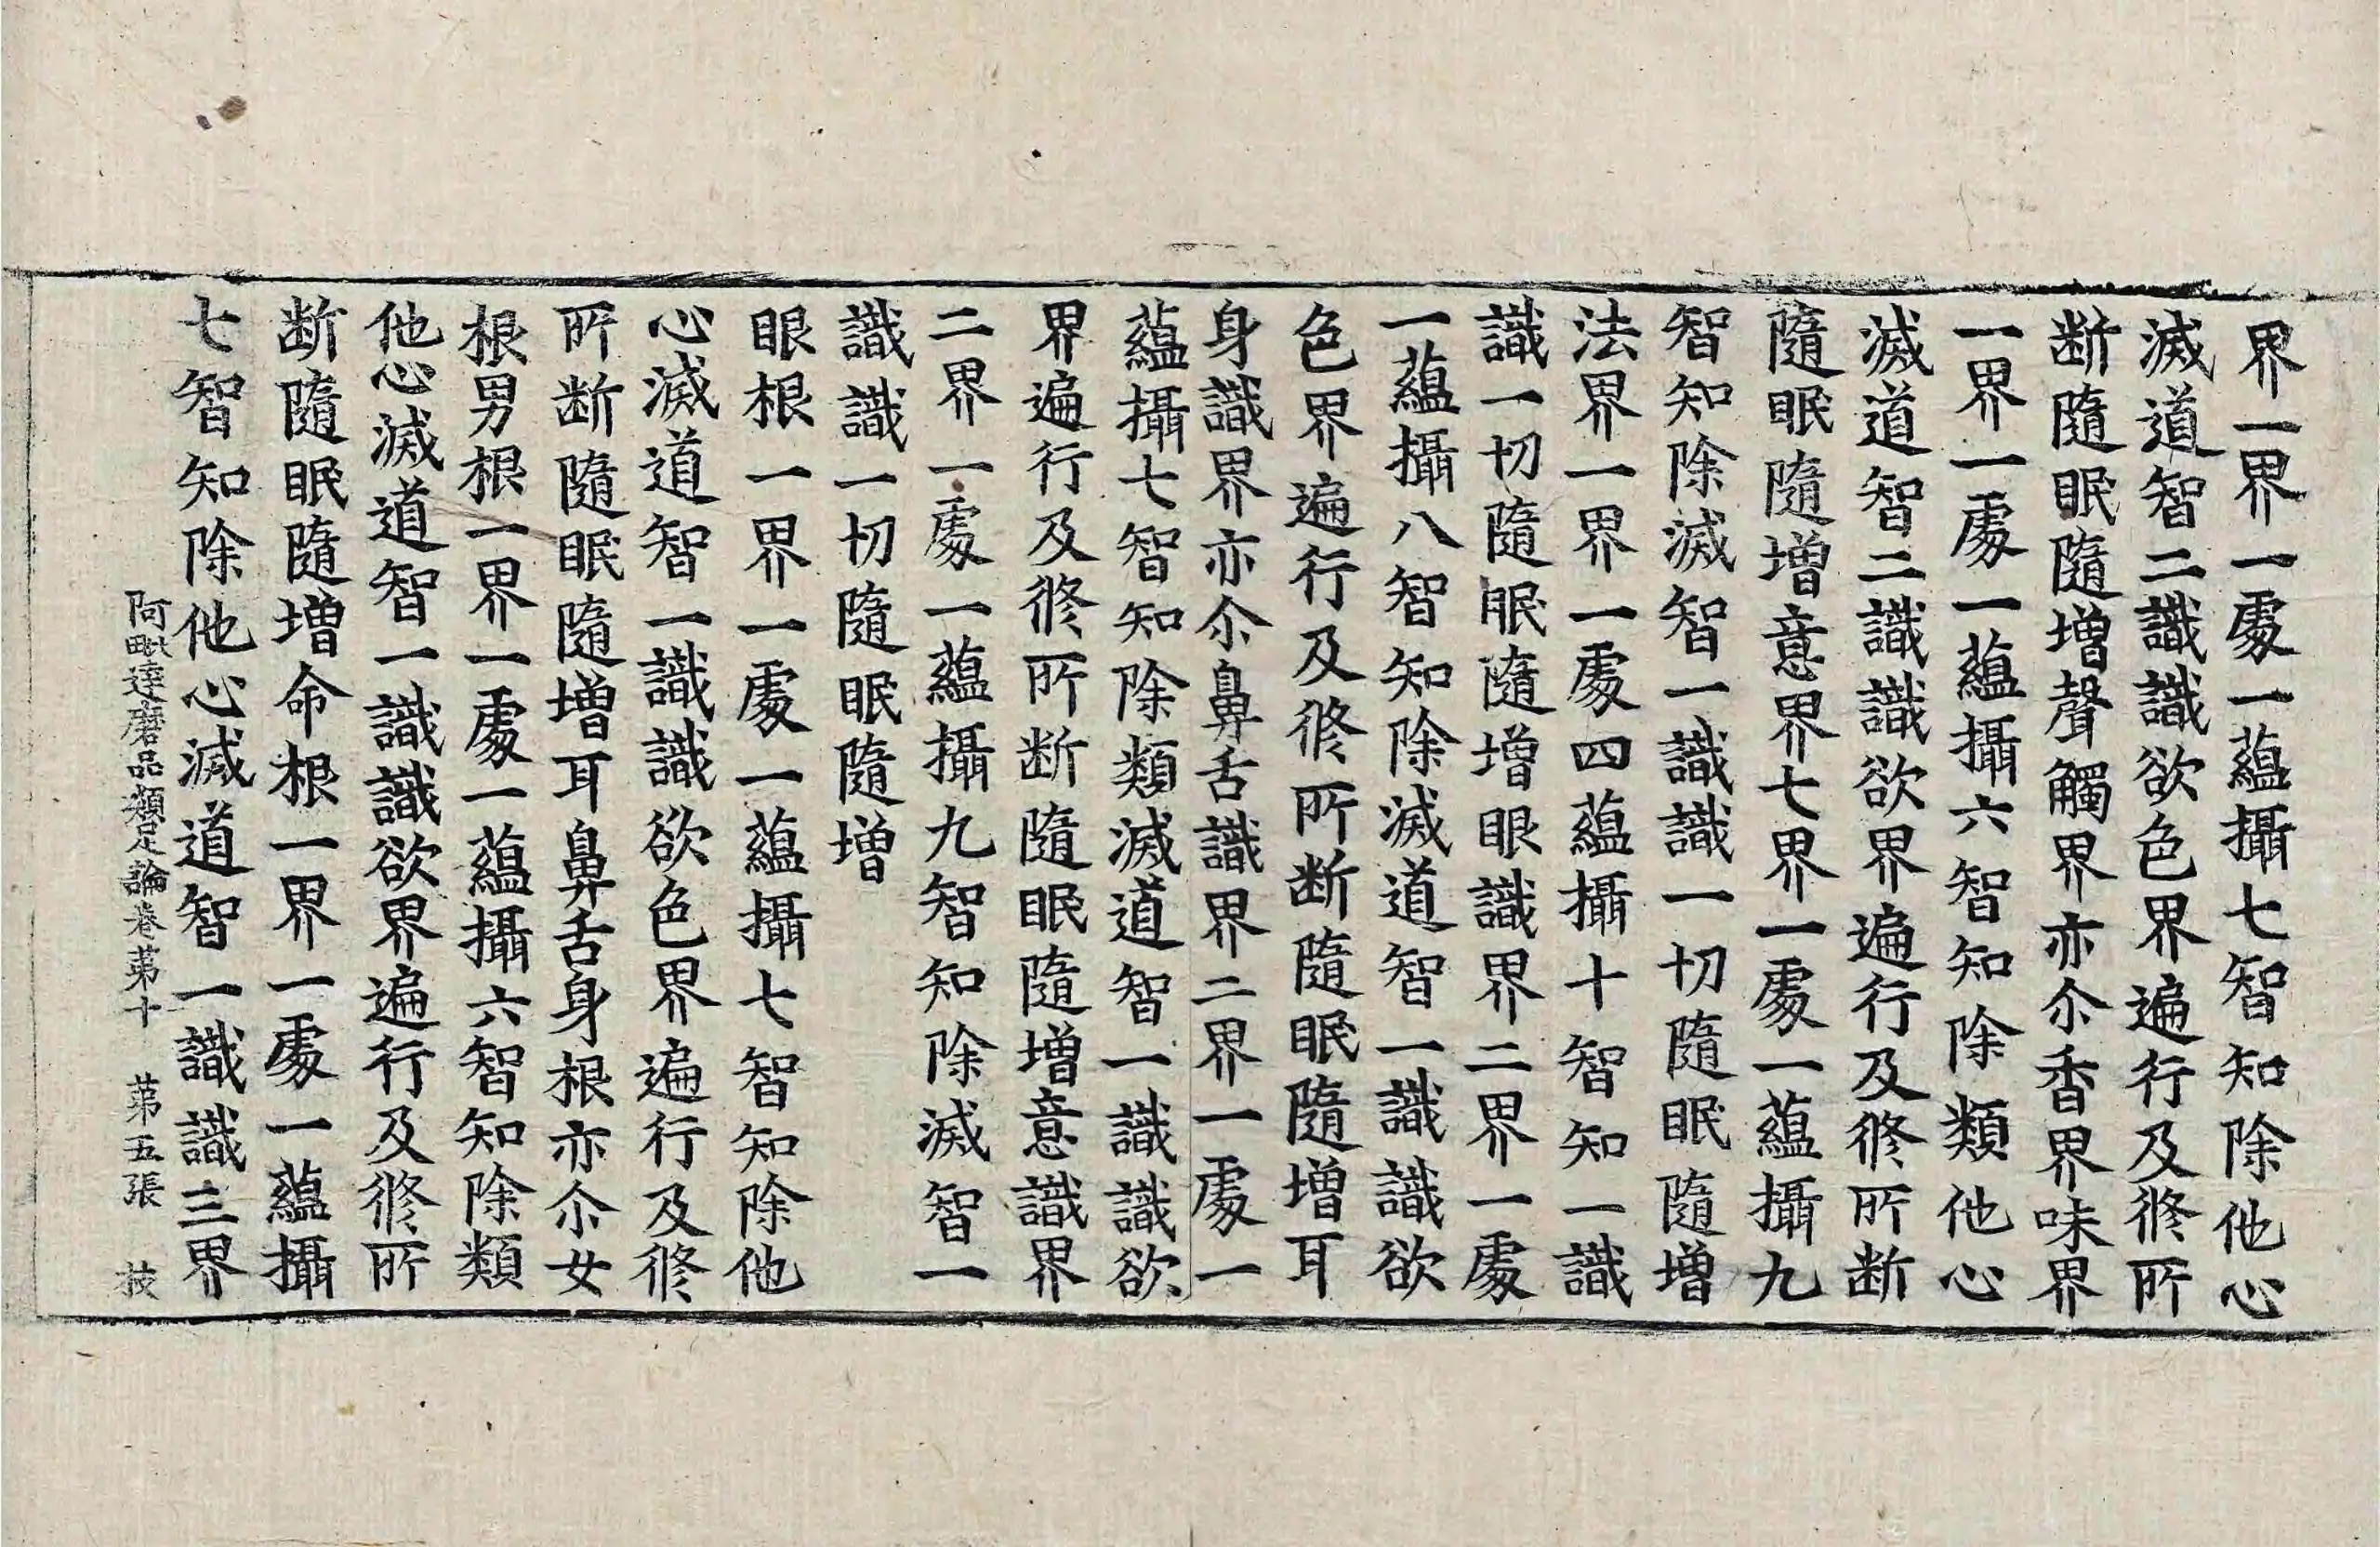 界一界一處一蘊攝七智知除他心
滅道智二識識欲色界遍行及修所
断隨眠隨增聲觸界亦尒香界味界
一界一處一蘊攝六智知除類他心
滅道智二識識欲界遍行及修所断
隨眠隨增意界七界一處一蘊攝九
智知除滅智一識識一切隨眠隨增
法界一界一處四蘊攝十智知一識
識一切隨眠隨增眼識界二界一處
一蘊攝八智知除滅道智一識識欲
色界遍行及修所断隨眠隨增耳
身識界亦尒鼻舌識界二界一處一
蘊攝七智知除類滅道智一識識欲
界遍行及修所断隨眠隨增意識界
二界一處一蘊攝九智知除滅智一
識識一切隨眠隨增
眼根一界一處一蘊攝七智知除他
心滅道智一識識欲色界遍行及修
所断隨眠隨增耳鼻舌身根亦尒女
根男根一界一處一蘊攝六智知除類
他心滅道智一識識欲界遍行及修所
断隨眠隨增命根一界一處一蘊攝
七智知除他心滅道智一識識三界
阿毗達磨品類足論卷苐十 苐五張 技